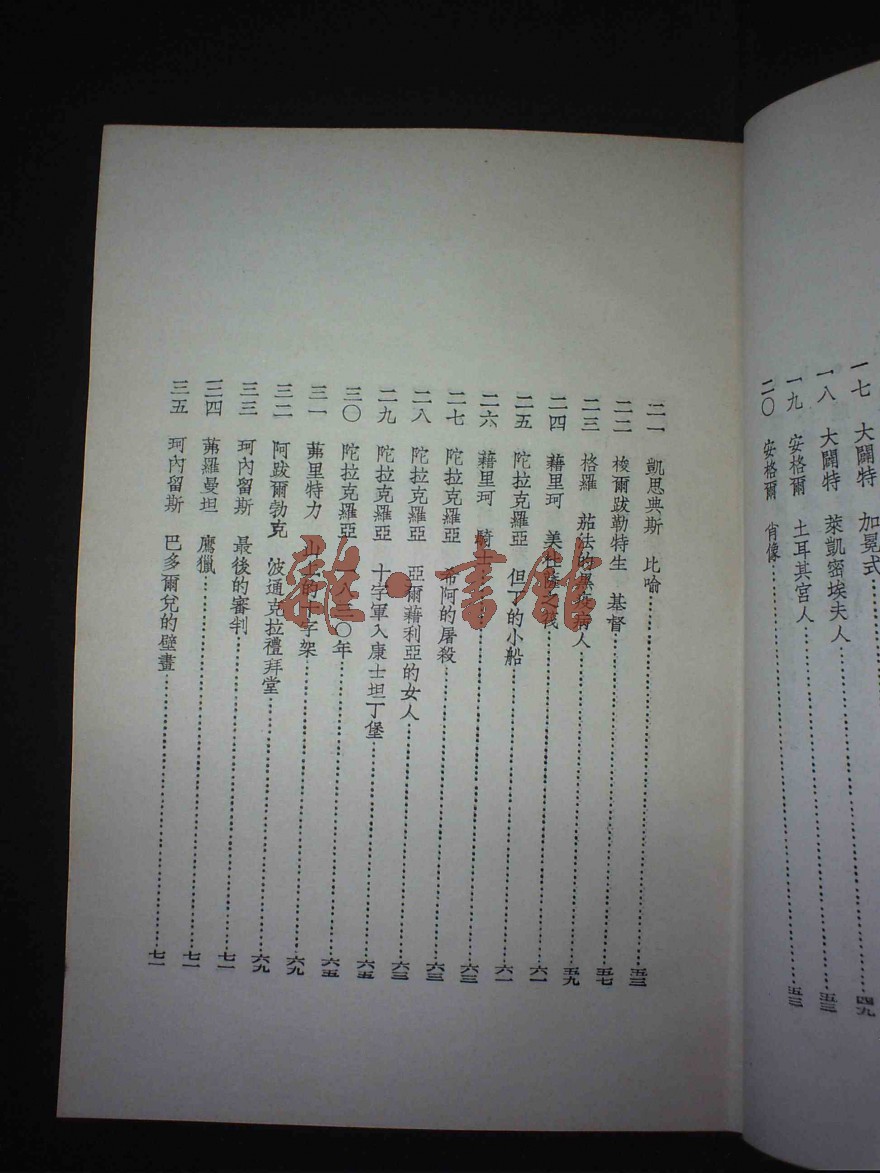 一七 大闢特 加冕式……四九
一八 大闢特 萊凱密埃夫人……五三
一九 安格爾 土耳其宮人……五三
二〇 安格爾 肖像
二一 凱思典斯 比喻……五三
二二 梭爾跋勒特生 基督……五七
二三 格羅 茄法的黑疫病人……五九
二四 藉里珂 美杜薩之筏……六一
二五 陀拉克羅亞 但丁的小船……六一
二六 藉里珂 騎士……六三
二七 陀拉克羅亞 希阿的屠殺……六三
二八 陀拉克羅亞 亞爾藉利亞的女人……六三
二九 陀拉克羅亞 十字軍入康士坦丁堡……六五
三〇 陀拉克羅亞 一八三〇年……六五
三一 茀里特力 山上的十字架……六九
三二 阿跋爾勃克 波通克拉禮拜堂……六九
三三 珂內留斯 最後的審判……七一
三四 茀羅曼坦 鷹獵……七一
三五 珂內留斯 巴多爾兌的壁畫……七一
雜·書館